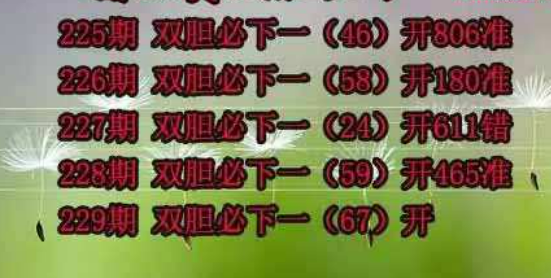 225期 双胆必下一（46）开806准
226期 双胆必下一（58）开180准
227期 双胆必下一（24）开611错
228期 双胆必下一（59）开465准
229期 双胆必下一（67）开